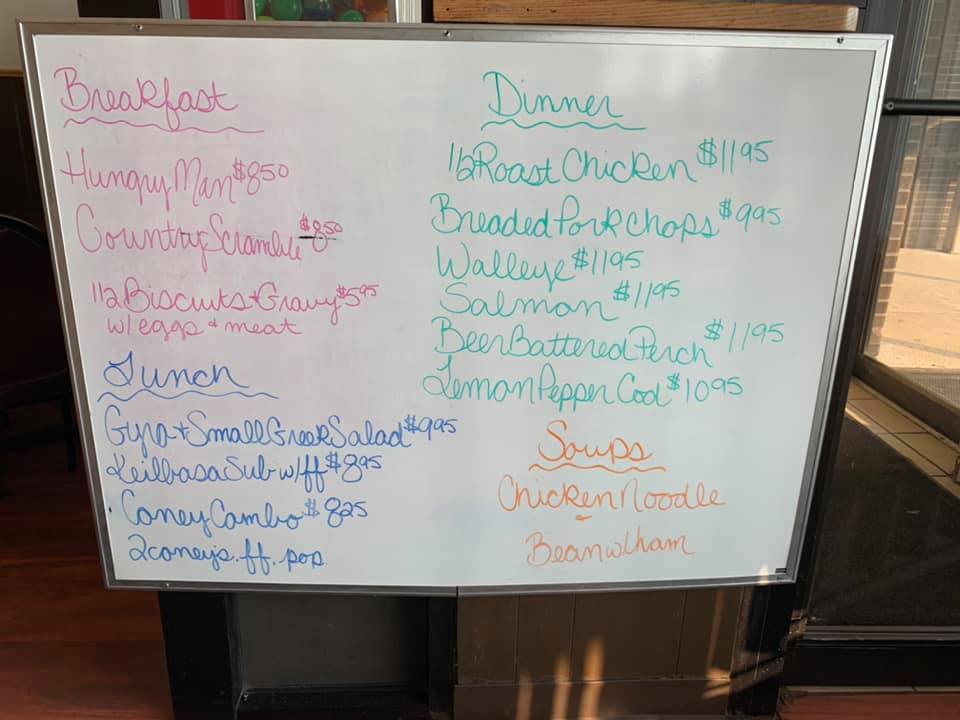 Breakfast
Hungry Man $8.50
Country Scramble $8.50
1/2 Biscuits + Gravy $5.95
w/ eggs + meat
Lunch
Gyro + Small Greek Salad $9.95
Keilbasa Sub w/ ff $8.95
Coney Combo $8.25
2 coney's. ff. pop
Dinner
1/2 Roast Chicken $11.95
Breaded Pork Chops $9.95
Walleye $11.95
Salmon $11.95
Beer Battered Perch $11.95
Lemon Pepper Cod $10.95
Soups
Chicken Noodle
Bean w/ ham